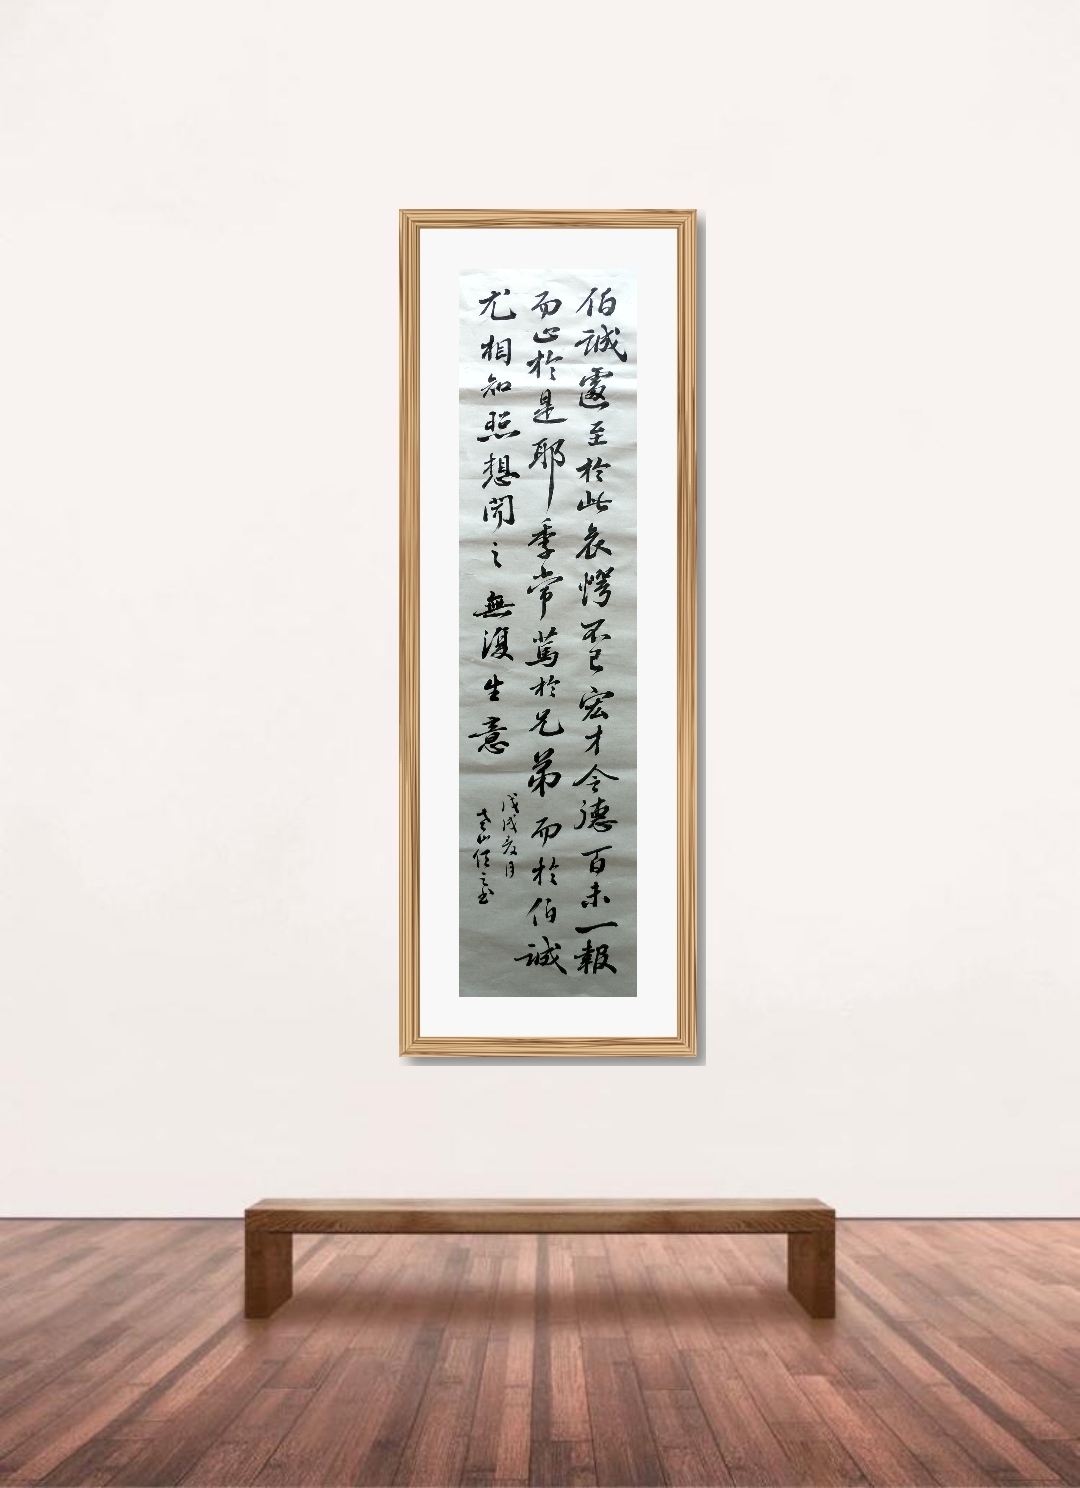 伯誠遽至於此哀愕不已宏才令德百未一報
而止於是耶季常篤於兄弟而於伯誠
尤相知照想聞之無復生意
戊戌夏月